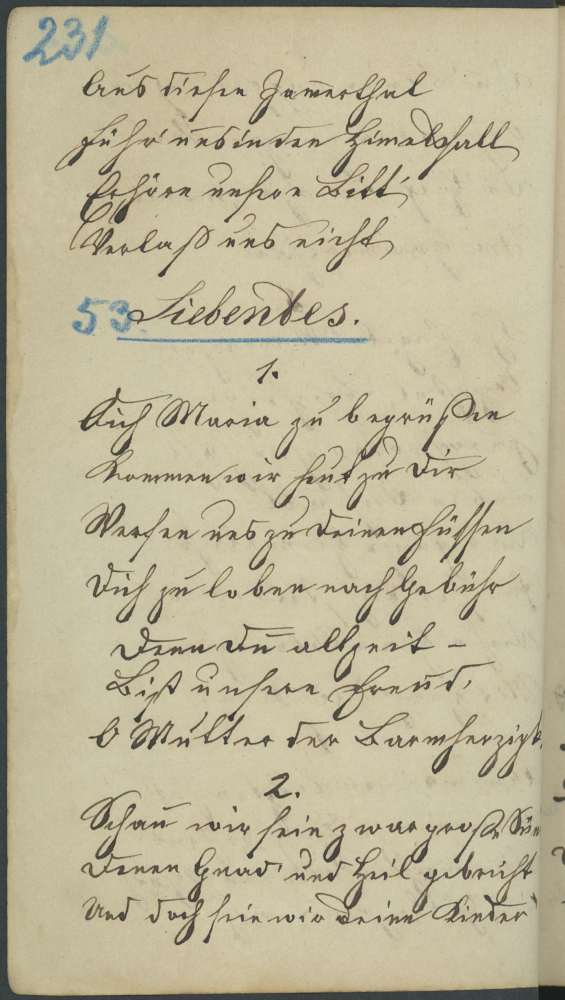 231
Aus diesen Jam̅erthal
Führ' uns in den Him̅elssall
Erhöre unsere Bitt'
Verlaß uns nicht
53. Siebendes.
1.
Dich Maria zu begrüßen
Kommen wir heut zu Dir
Werfen uns zu Deinen Füssen
Dich zu loben nach Gebühr
Denn Du allzeit –
Bist unsere Freud,
O Mutter der Barmherzigk
2.
Schau wir sein zwar große Sün
Denen Gnad' und Heil gebricht
Und doch sein wir Deine Kinder